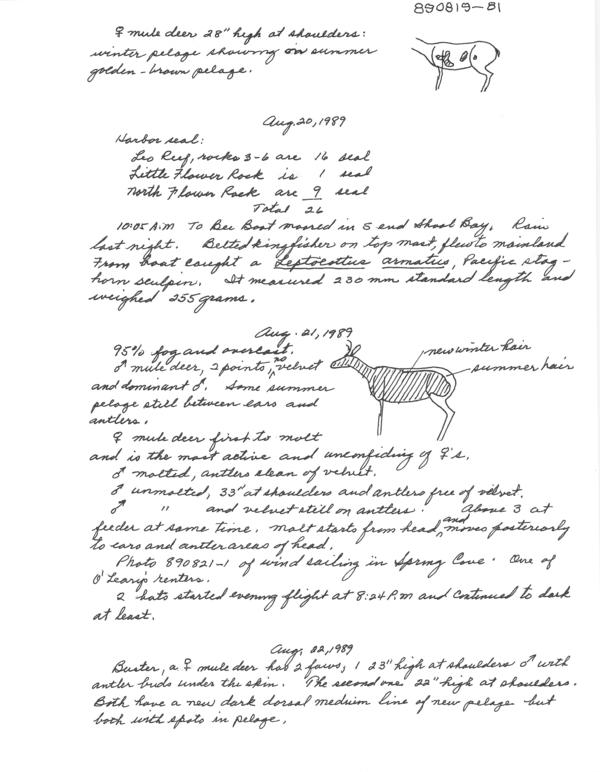 890819-B1
♀ mule deer 28" high at shoulders:
winter pelage showing on summer
golden-brown pelage.
Aug. 20, 1989
Harbor seal:
Leo Reef, rocks 3-6 are 16 seal
Little Flower Rock is 1 seal
North Flower Rock are 9 seal
Total 26
10:05 A.M To Bee Boat moored in S end Shoal Bay. Rain
last night. Belted kingfisher on top mast, flew to mainland
From boat caught a Leptocottus armatus, Pacific stag-
horn sculpin. It measured 230 mm standard length and
weighed 255 grams.
Aug. 21, 1989
95% fog and overcast.
♂ mule deer, 2 points, no velvet
and dominant ♂. Some summer
pelage still between ears and
antlers.
new winter hair
summer hair
♀ mule deer first to molt
and is the most active and unconfiding of ♀'s.
♂ molted, antlers clean of velvet.
♂ unmolted, 33" at shoulders and antlers free of velvet.
♂ " and velvet still on antlers. Above 3 at
feeder at same time. Molt starts from head, and moves posteriorly
to ears and antler areas of head.
Photo 890821-1 of wind sailing in Spring Cove. One of
O'Leary's renters.
2 bats started evening flight at 8:24 P.M and continued to dark
at least.
Aug. 22, 1989
Buster, a ♀ mule deer has 2 fawns, 1 23" high at shoulders ♂ with
antler buds under the skin. The second one 22" high at shoulders.
Both have a new dark dorsal medium line of new pelage but
both with spots in pelage.